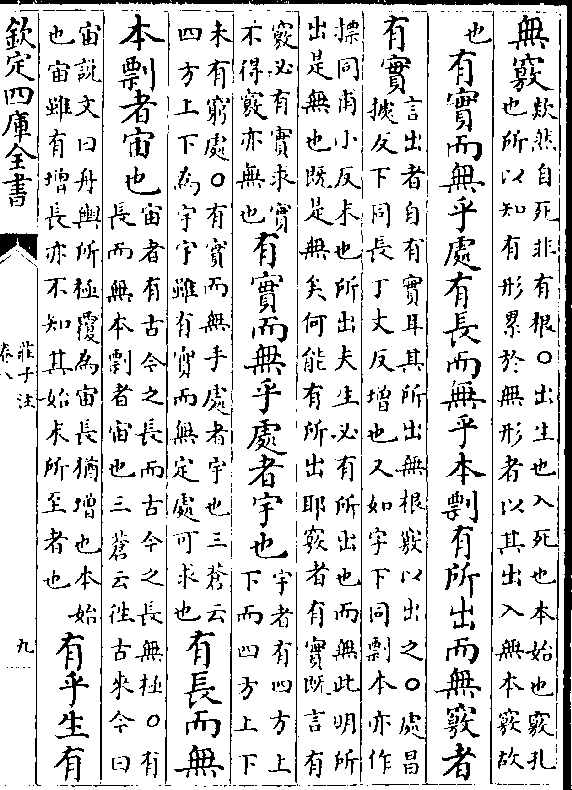 無竅欻然自死非有根〇出生也入死也本始也竅孔
也所以知有形累於無形者以其出入無本竅故
也有實而無乎處有長而無乎本剽有所出而無竅者
有實言出者自有實耳其所出無根竅以出之〇處昌
據反下同長丁丈反增也又如字下同剽本亦作
摽同甫小反末也所出夫生必有所出也而無此明所
出是無也既是無矣何能有所出耶竅者有實既言有
竅必有實求實
不得竅亦無也有實而無乎處者宇也宇者有四方上
下而四方上下
未有窮處〇有實而無乎處者宇也三蒼云
四方上下為宇宇雖有實而無定處可求也有長而無
本剽者宙也宙者有古今之長而古今之長無極〇有
長而無本剽者宙也三蒼云徃古來今曰
宙說文曰舟輿所極覆為宙長猶增也本始
也宙雖有增長亦不知其始末所至者也有乎生有
欽定四庫全書
莊子注
卷八
九